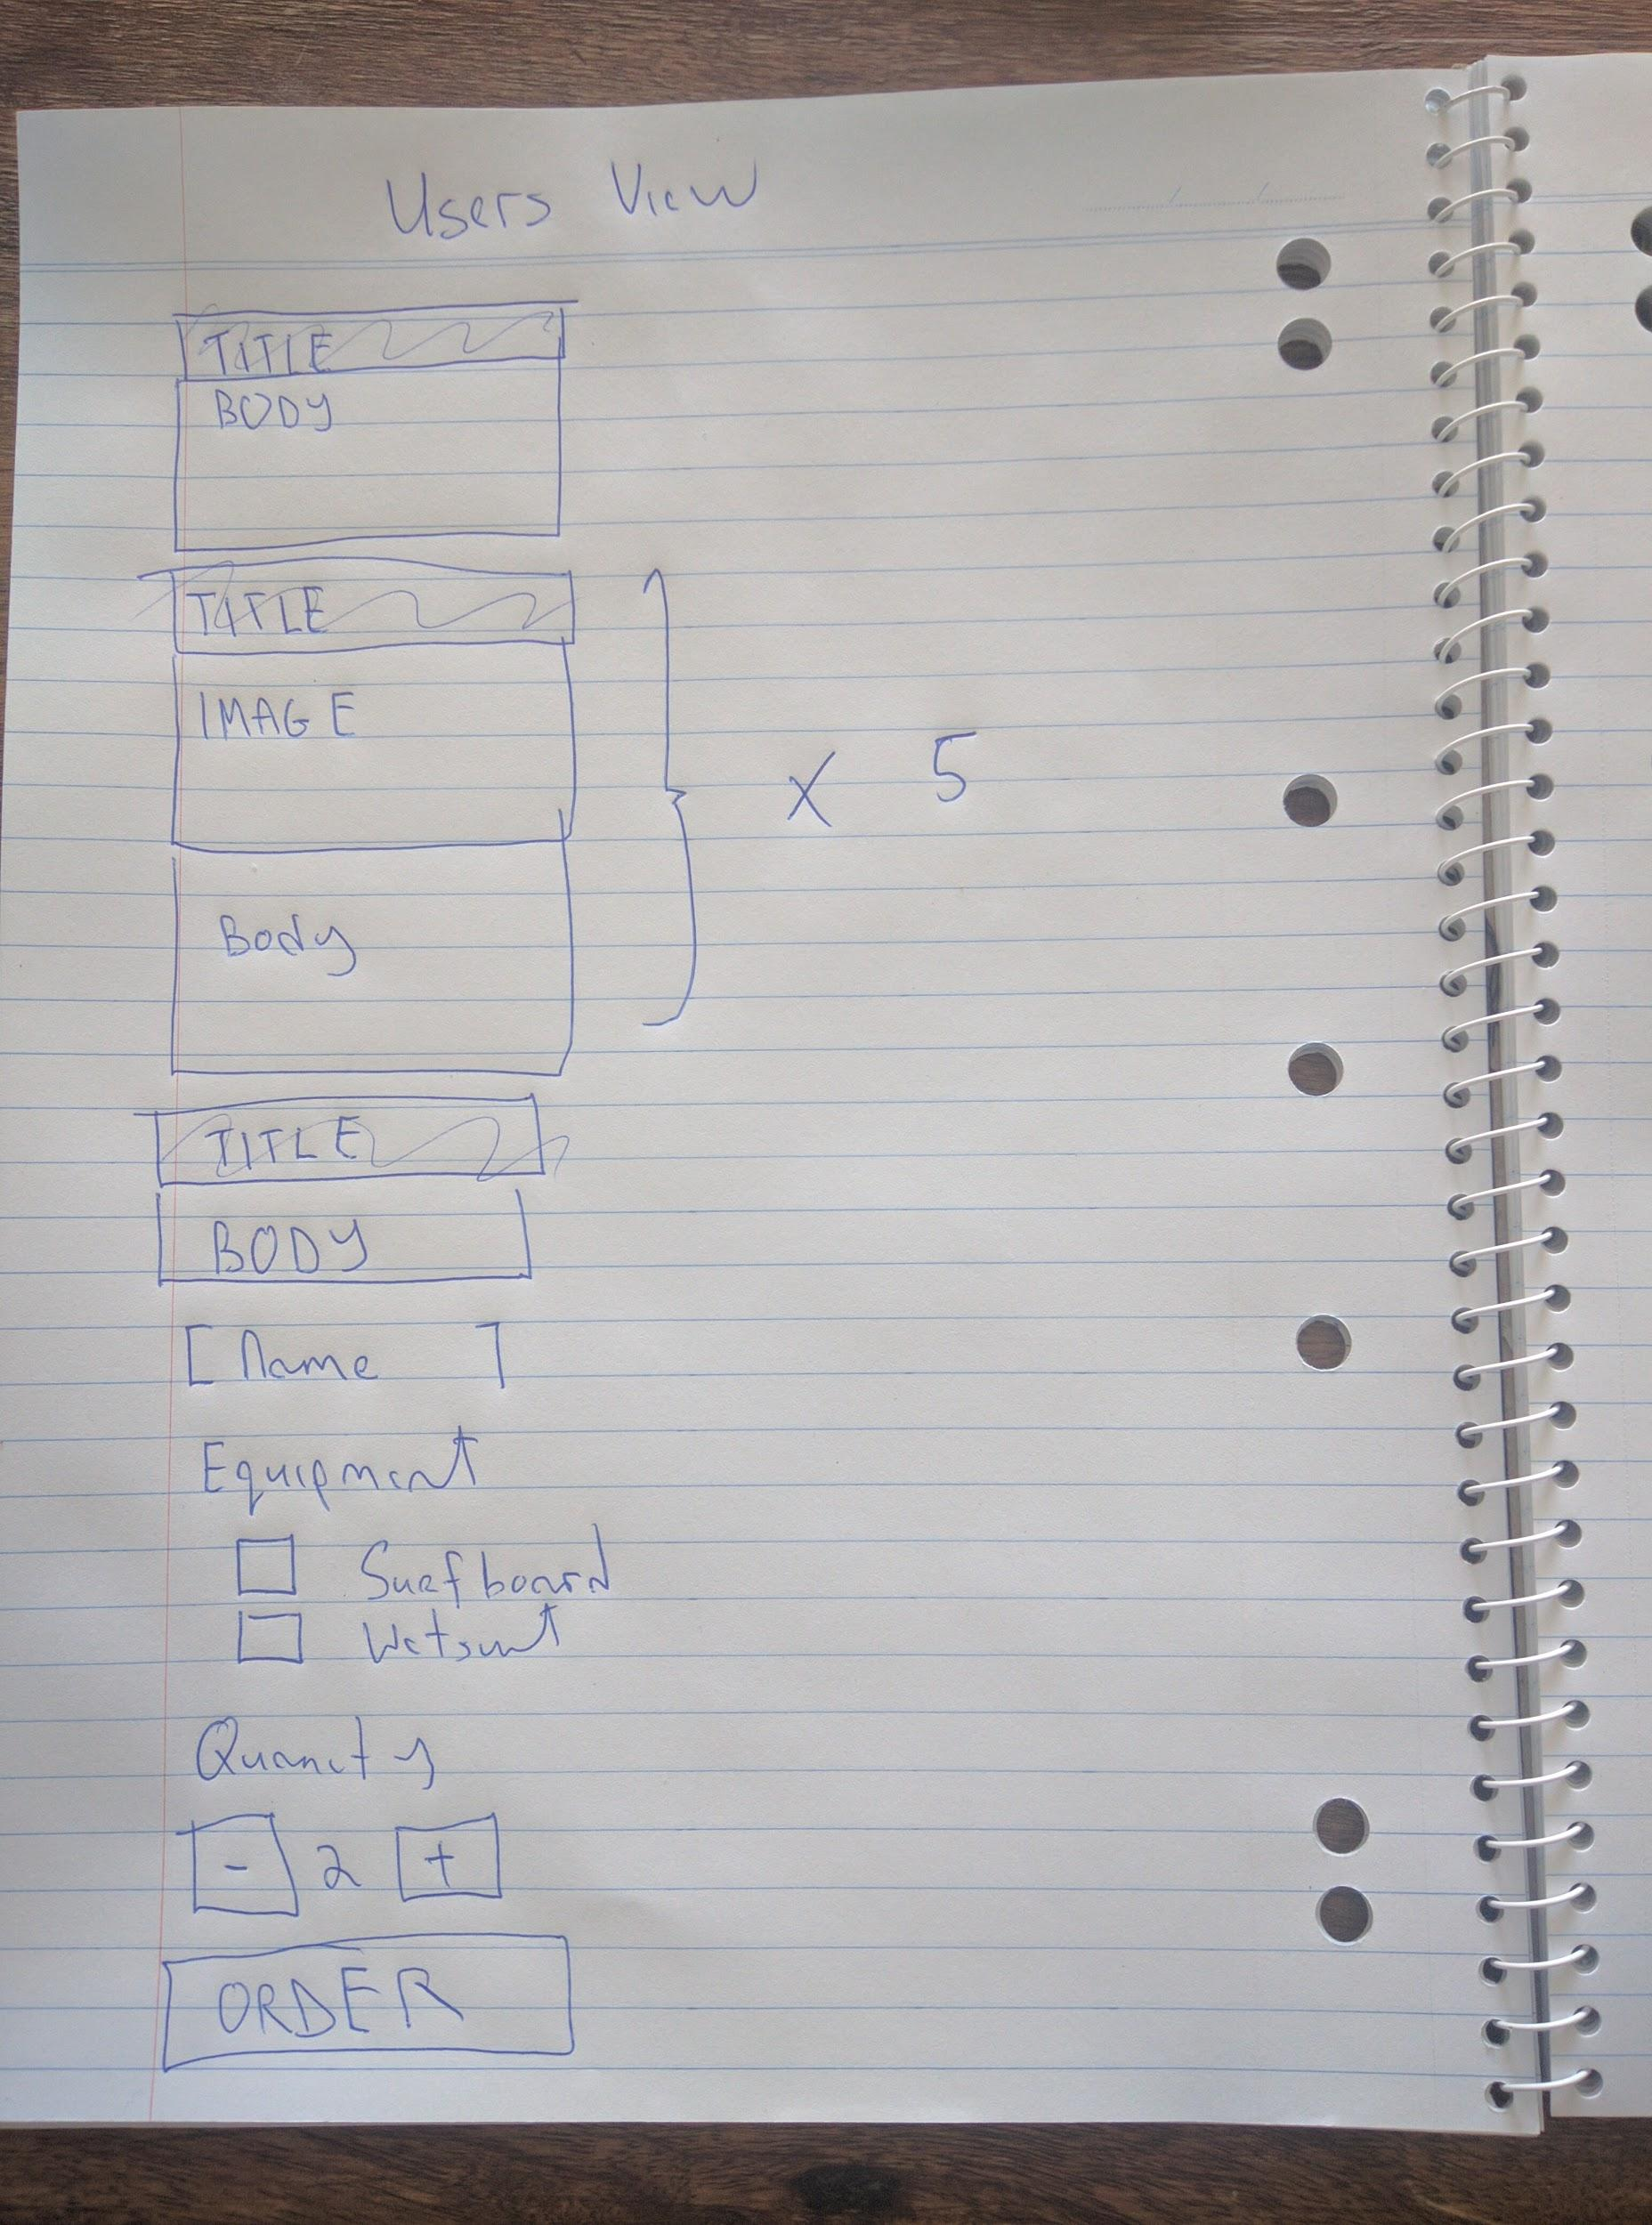 Users View
TITLE
BODY
TITLE
IMAGE
x 5
Body
TITLE
BODY
[Name ]
Equipment
Surfboard
Wetsuit
Quantity
- 2 +
ORDER